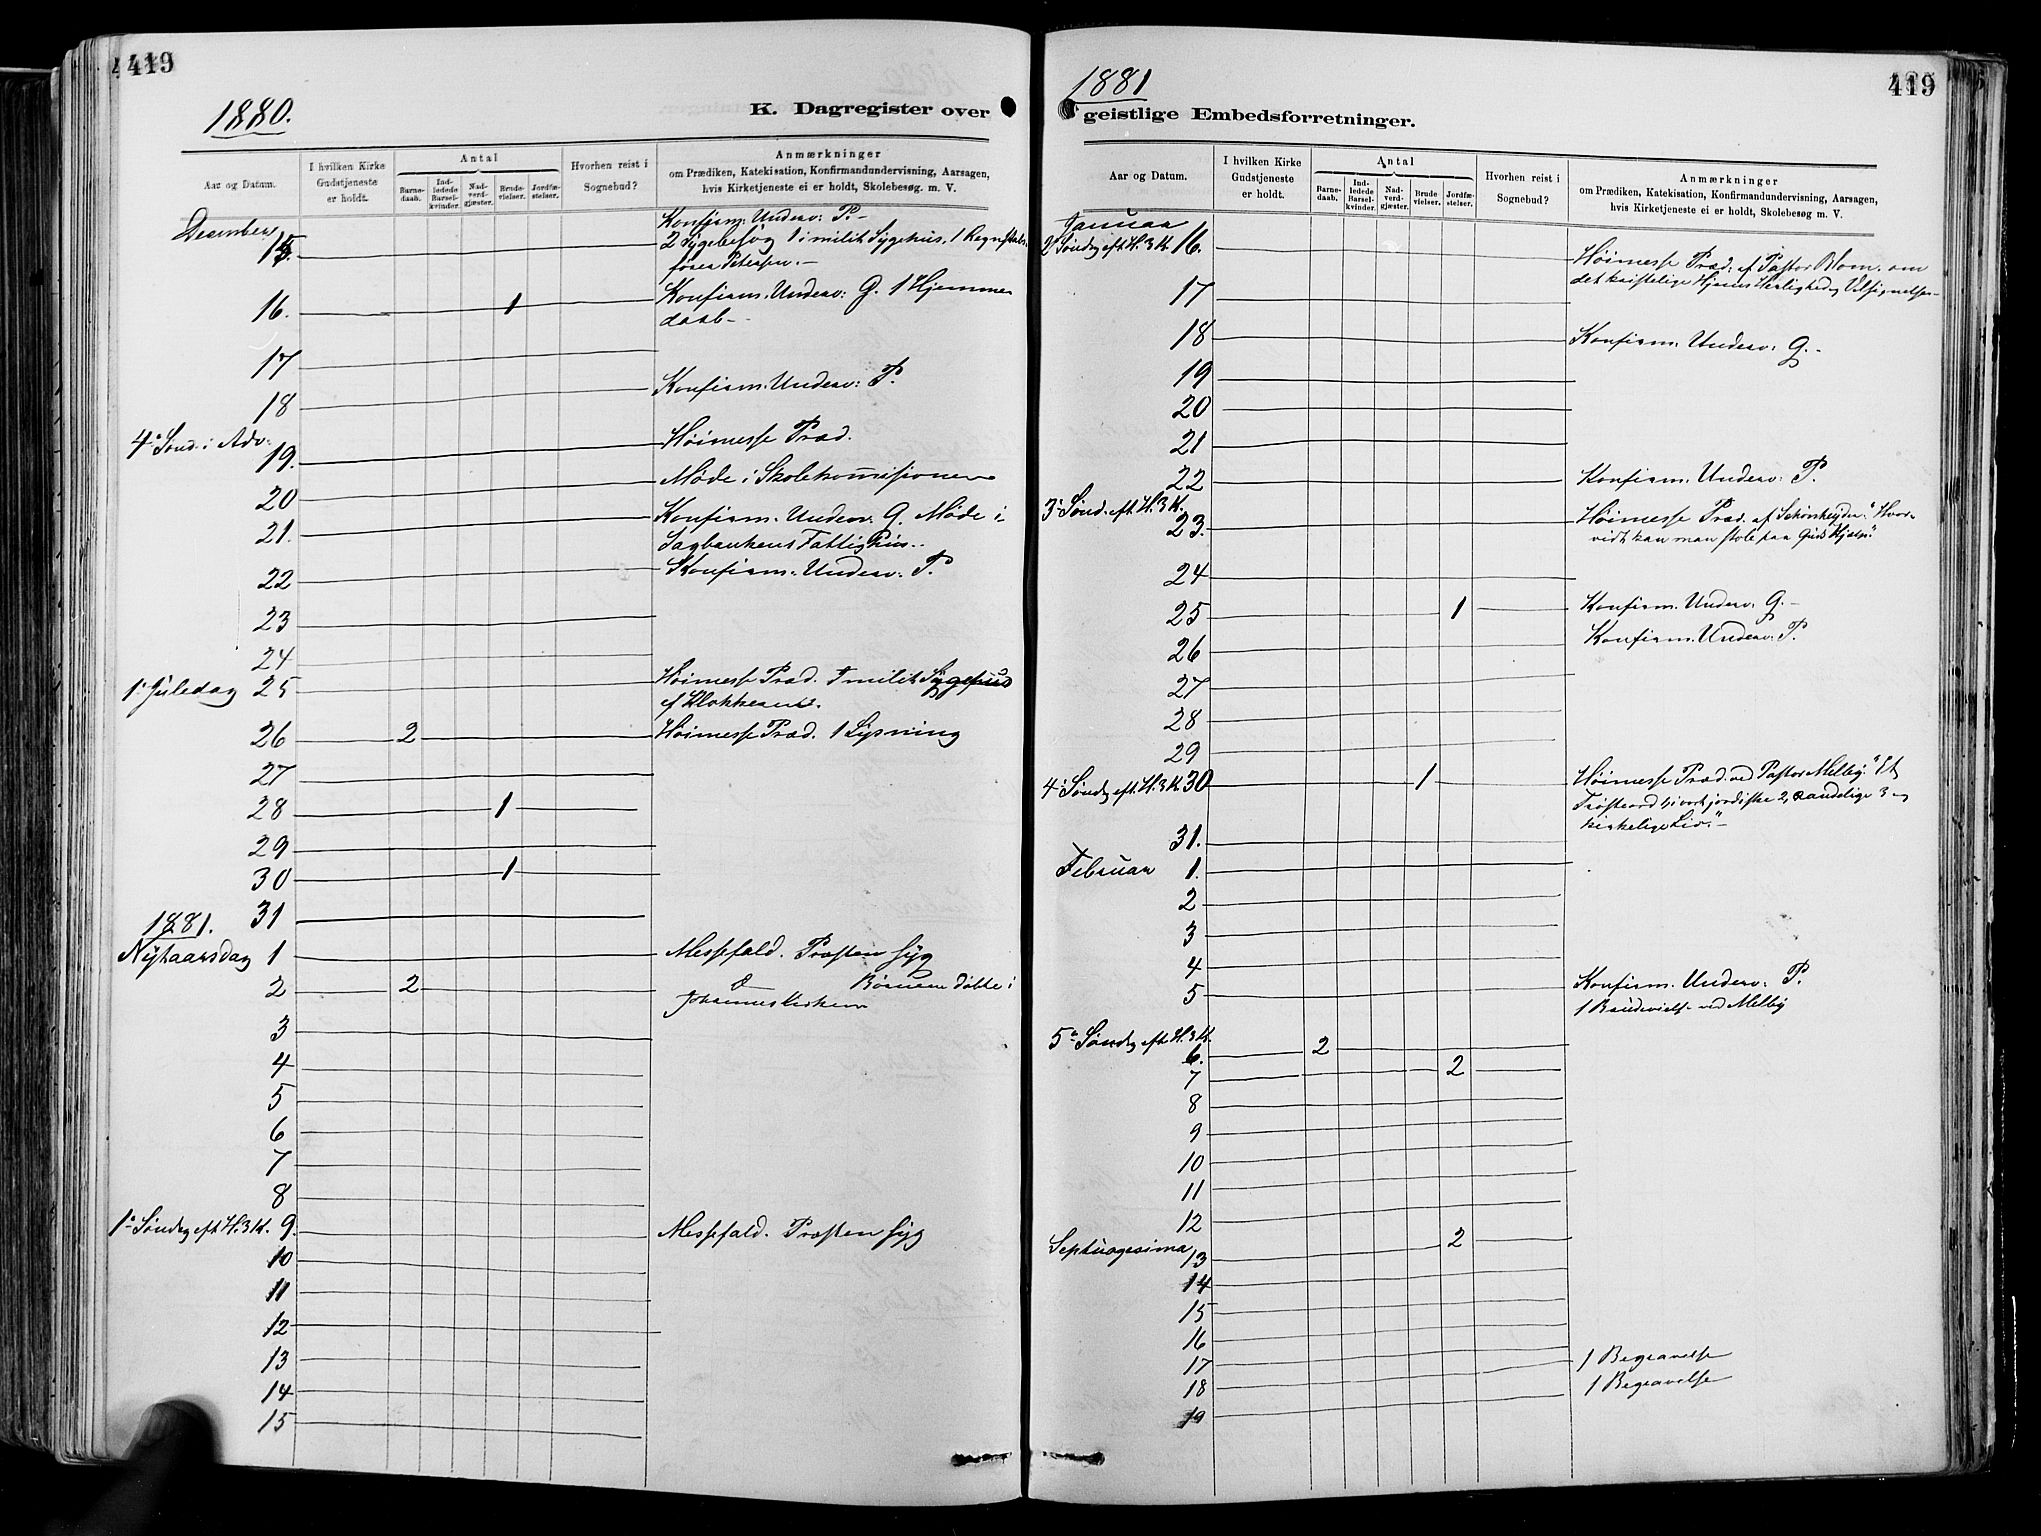 419
1880.
K. Dagregister over
Aar og Datum.
I hvilken Kirke Gudstjeneste er holdt.
Antal
Barne-daab.
Ind-ledede Barsel-kvinder.
Nad-verd-gjæster.
Brude-vielser.
Jordfæ-stelser.
Hvorhen reist i Sognebud?
Anmærkninger
om Prædiken, Katekisation, Konfirmandundervisning, Aarsagen,
hvis Kirketjeneste ei er holdt, Skolebesøg. m. V.
Desember
15. Konfirm. Underv: P.-
2 Sygebesøg 1 i milit Sygehus, 1 Regnskabs-
fører Petersen.-
16. 1 Konfirm. Underv: G. 1 Hjemme
daab-
17
18 Konfirm. Underv: P.
4. Sønd. i Adv.
19. Høimesse Præd.
20 Møde i Skolekomisionen
21. Konfirm. Underv. G. Møde i
Sagbankens Fattighus..
22 Konfirm. Underv: P.
23
24
1. Juledag 25 Høimesse Præd. I milit Sygehus
af Klokkeren.
26 2 Høimesse Præd. 1 Lysning
27
28 1
29
30 1
31
1881.
Nytaarsdag 1 Messefald. Præsten syg
2 2 Børnene døbte i
Johanneskirken
3
4
5
6
7
8
1. Søndag eft H.3K. 9. Messefald. Præsten syg
10
11
12
13
14
15
1881
419
geistlige Embedsforretninger.
Aar og Datum.
I hvilken Kirke Gudstjeneste er holdt.
Antal
Barne-daab.
Ind-ledede Barsel-kvinder.
Nad-verd-gjæster.
Brude vielser.
Jordfæ-stelser.
Hvorhen reist i Sognebud?
Anmærkninger
om Prædiken, Katekisation, Konfirmandundervisning, Aarsagen,
hvis Kirketjeneste ei er holdt, Skolebesøg m. V.
Januar
2 Søndag eft. H.3K. 16. Høimesse Præd. af Pastor Blom. om
det kristelige Hjems Herlighed og Velsignelser-
17
18 Konfirm. Underv: G.-
19
20
21
22 Konfirm. Underv: P.
3. Sønd. eft. H.3K.
23. Høimesse Præd. af Schørsheyder: "Hvor-
vidt kan man stole paa Guds Hjælp."
24
25 1 Konfirm. Underv: G.-
26 Konfirm. Underv: P.
27
28
29
4. Søndag eft. H.3K. 30 1 Høimesse Præd. ved Pastor Melby. "Et
Trøsteord 1, i vort jordiske 2, aandelige 3 og
kirkelige Liv."-
31.
Februar 1.
2
3
4
5 Konfirm. Underv: P.
1 Brudevielse ved Melby
5. Søndag eft H.3K.
6. 2
7 2
8
9
10
11
12
Septuagesima 13 2
14
15
16
17 1 Begravelse
18 1 Begravelse
19